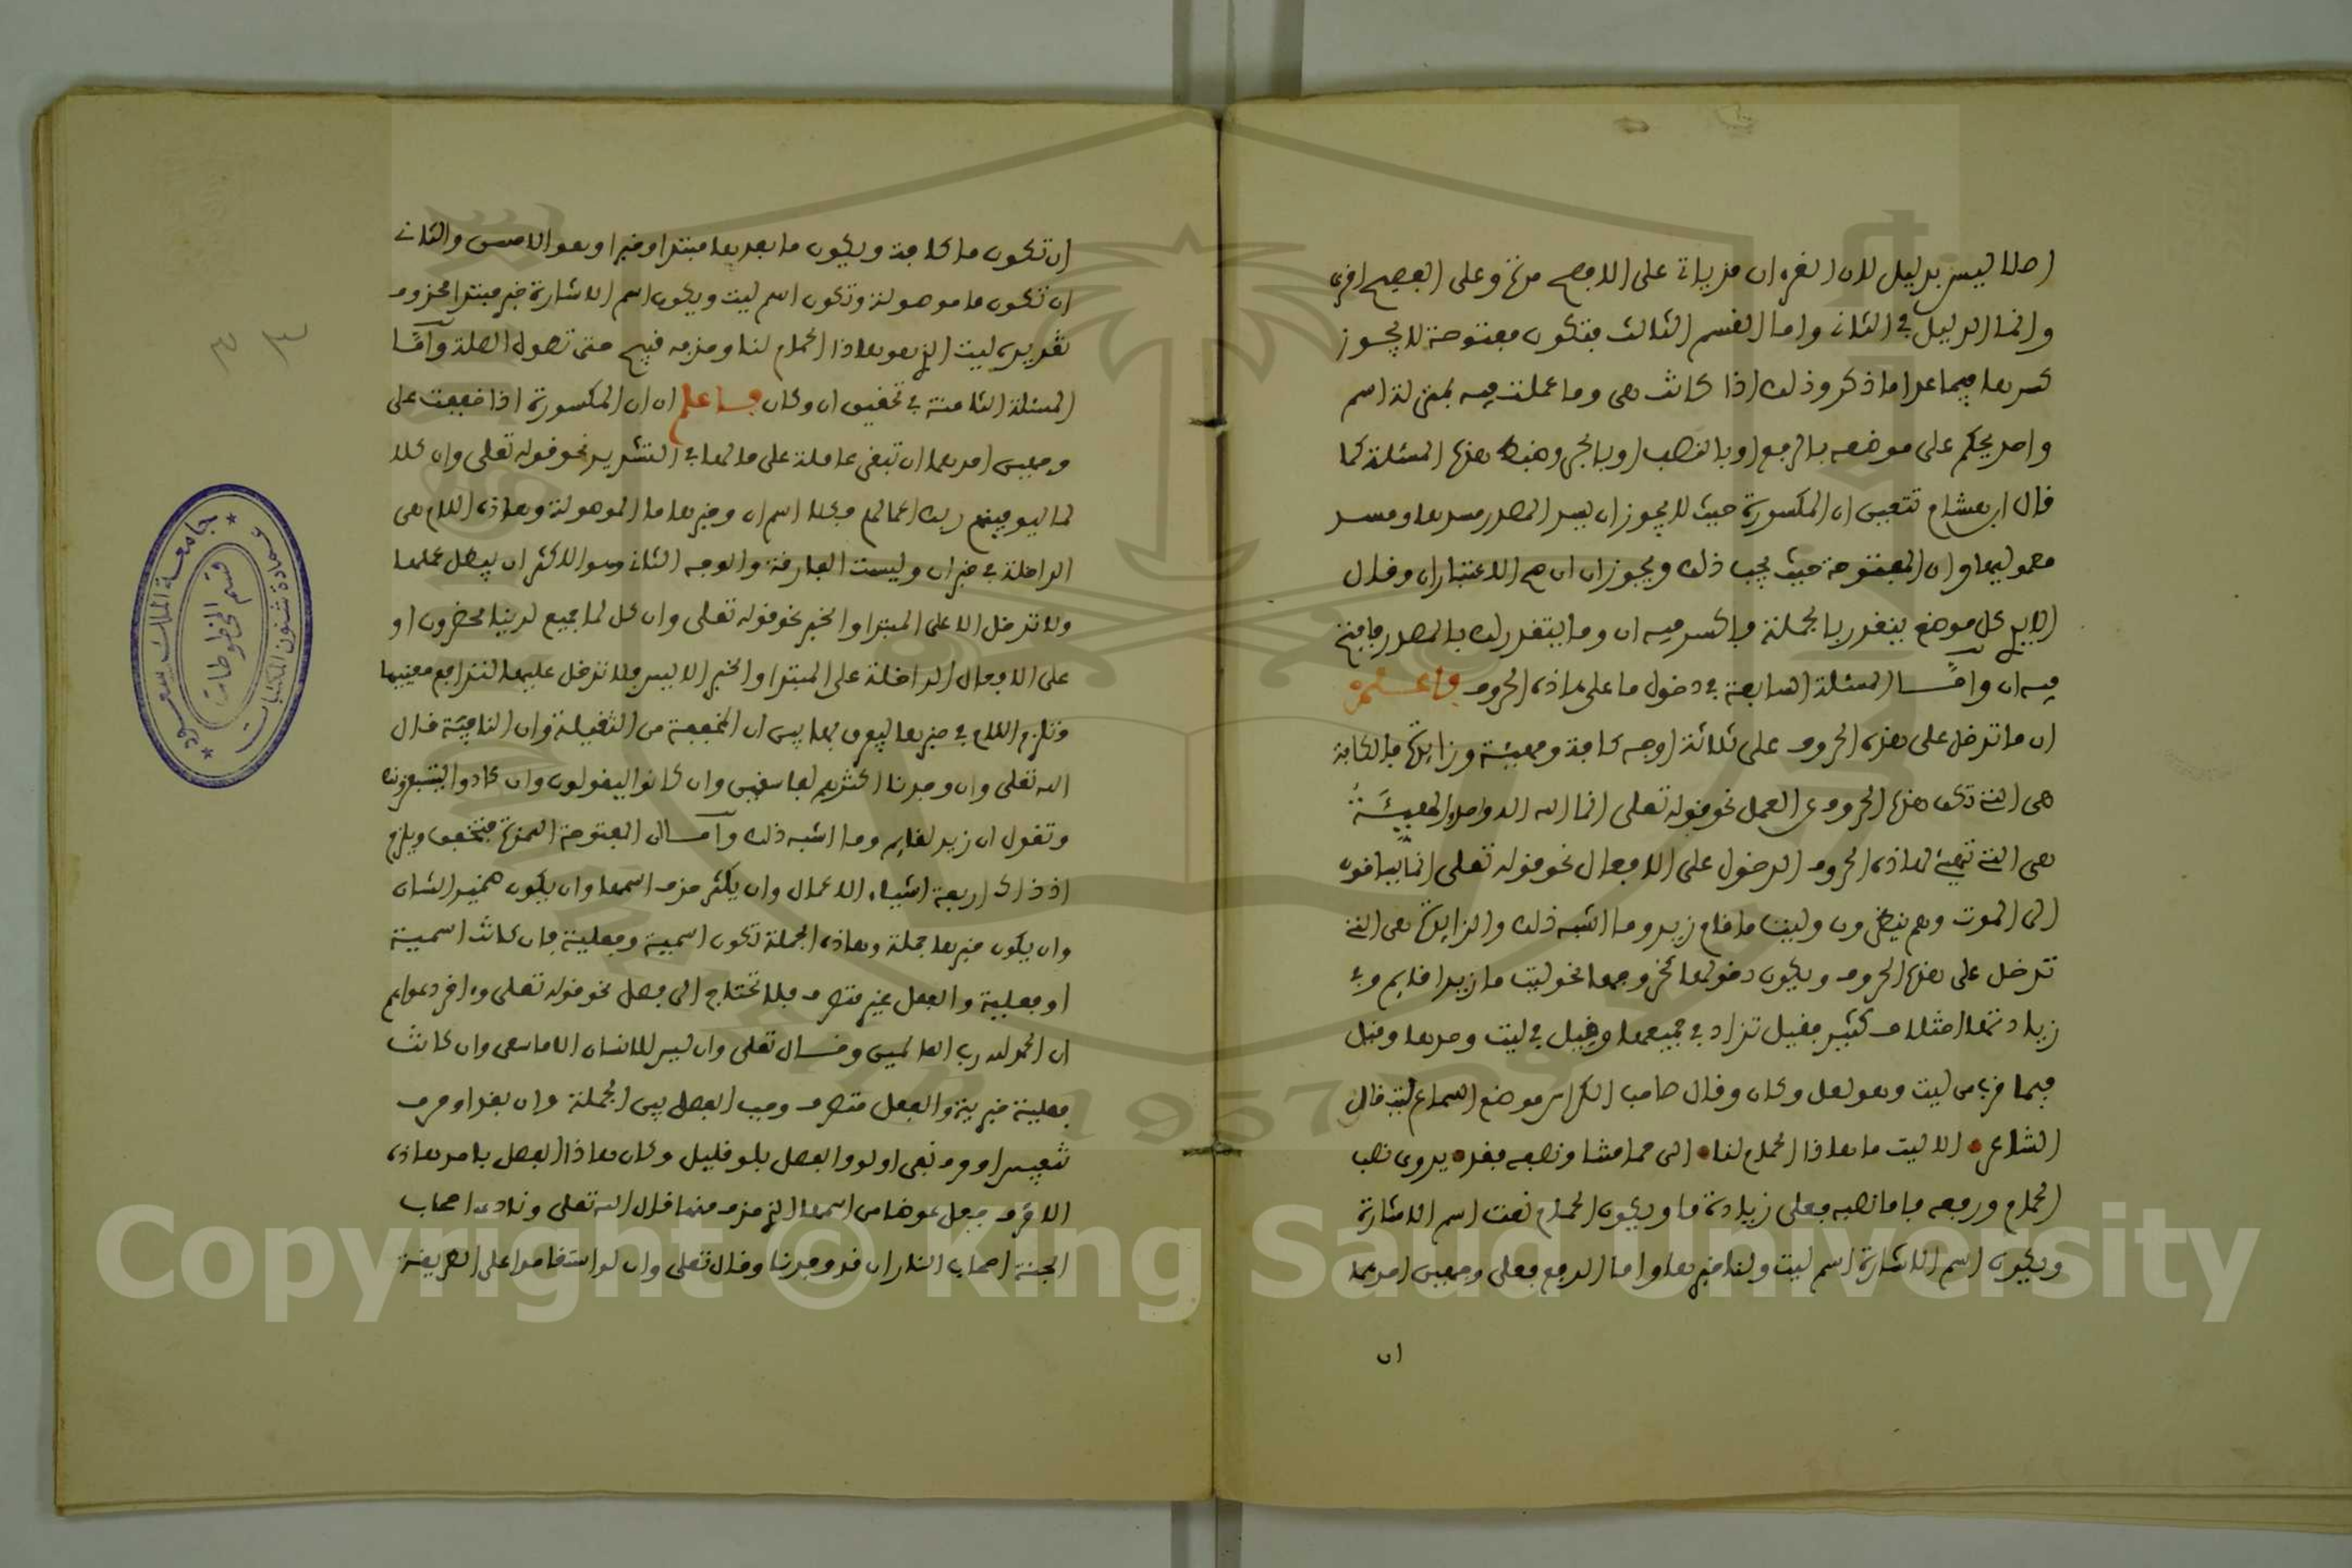 اصلا ليس بدليل لان القرءان منزل تارة على الافصح مرة وعلى الفصيح اخرى
وانما الدليل في الثاني واما القسم الثالث فتكون مفتوحة لا يجوز
كسرها فيما عدا ما ذكر وذلك اذا كانت هي وما عملت فيه بمنزلة اسم
واحد يحكم على موضعه بالرفع او بالنصب او بالجر وضبط هذه المسئلة كما
قال ابن هشام تتعين ان المكسورة حيث لا يجوز ان يسد المصدر مسدها ومسد
معموليها وان المفتوحة حيث يجب ذلك ويجوزان ان صح الاعتباران وقال
كل موضع ينفرد بالجملة فاكسر فيه ان وما يتقدر لك بالمصدر فافتح
فيه ان وأمـا المسئلة السابعة في دخول ما على هاذه الحروف فاعـلم
ان ما تدخل على هذه الحروف على ثلاثة اوجه كافة ومهيئة وزايدة فالكافة
هي التي تكف هذه الحروف عن العمل نحو قوله تعلى انما الله اله واحد والمهيئة
هي التي تهيئ هاذه الحروف الدخول على الافعال نحو قوله تعلى انما يساقون
الى الموت وهم ينظرون وليتما قام زيد وما اشبه ذلك والزايدة هي التي
تدخل على هذه الحروف ويكون دخولها كخروجها نحو ليت ما زيدا قايم وفي
زيادتها اختلاف كثير فقيل تزاد في جميعها وقيل في ليت وحدها وقيل
فيما قرب من ليت وهو لعل وكان وقال صاحب الكراس موضع السماع ليت قال
الشاعر • الا ليت ما هاذا الحمام لنا • الى حمامتنا ونصفه فقد • يروى نصب
الحمام ورفعه فاما نصبه فعلى زيادة ما ويكون الحمام نعت اسم الاشارة
ويكون اسم الاشارة اسم ليت ولنا خبرها واما الرفع فعلى وجهين احدهما
ان
ان تكون ما كافة ويكون ما بعدها مبتدا وخبرا وهو الاحسن والثاني
ان تكون ما موصولة وتكون اسم ليت ويكون اسم الاشارة خبر مبتدا محذوف
تقديره ليت الذي هو هاذا الحمام لنا وحذفه قبيح حتى تطول الصلة وأمـا
المسئلة الثامنة في تخفيف ان وكان فاعلم ان ان المكسورة اذا خففت على
وجهين احدهما ان تبقى عاملة على ما لها في التشديد نحو قوله تعلى وان كلا
لما ليوفينهم ربك اعمالهم فكلا اسم ان وخبرها ما الموصولة وهاذه اللام هي
الداخلة في خبر ان وليست الفارقة والوجه الثاني وهو الاكثر ان يبطل عملها
ولا تدخل الا على المبتدا والخبر نحو قوله تعلى وان كل لما جميع لدينا محضرون او
على الافعال الداخلة على المبتدا والخبر الا ليس فلا تدخل عليها لتدافع معنييها
وتلزم اللام في خبرها ليفرق بها بين ان المخففة من الثقيلة وان النافية قال
الله تعلى وان وجدنا اكثرهم لفاسقين وان كانوا ليقولون وان كادوا ليستفزونك
وتقول ان زيد لقايم وما اشبه ذلك وأمـا ان المفتوحة الهمزة فتخفف ويلزم
اذ ذاك اربعة اشياء الاعمال وان يكثر حذف اسمها وان يكون ضمير الشان
وان يكون خبرها جملة وهاذه الجملة تكون اسمية وفعلية فان كانت اسمية
او فعلية والفعل غير متصرف فلا تحتاج الى فصل نحو قوله تعلى وءاخر دعواهم
ان الحمد لله رب العالمين وقـال تعلى وان ليس للانسان الا ما سعى وان كانت
فعلية خبرية والفعل متصرف وجب الفصل بين الجملة وان بقد او حرف
تنفيس او حرف نفي او لو والفصل بلو قليل وكان هاذا الفصل باحد هاذه
الاحرف جعل عوضا من اسمها الذي حذف منها قال الله تعلى ونادى اصحاب
الجنة اصحاب النار ان قد وجدنا وقال تعلى وان لو استقاموا على الطريقة
٣٤
جامعة الملك سعود
عمادة شئون المكتبات
قسم المخطوطات
1957
Copyright © King Saud University